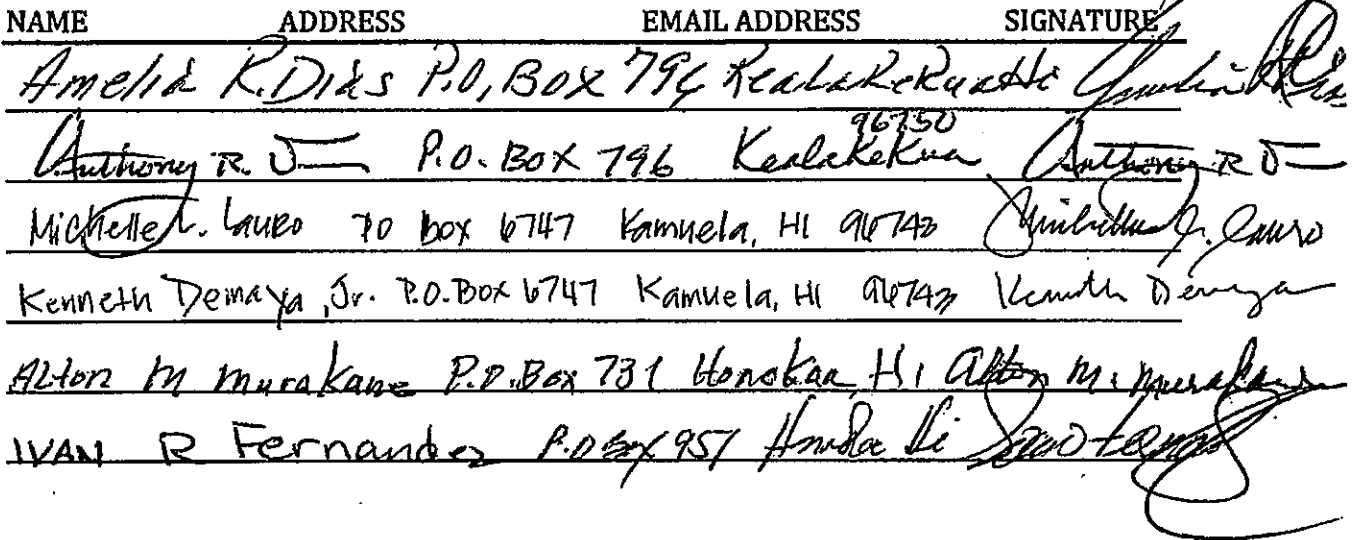 NAME ADDRESS EMAIL ADDRESS SIGNATURE
Amelia K. Dias P.O, Box 796 Kealakekua Hi Amelia K Dias
96750
Anthony R. P.O. Box 796 Kealakekua Anthony R
Michelle L. Lauro PO box 6747 Kamuela, HI 96743 Lauro
Kenneth Demaya, Jr. P.O. Box 6747 Kamuela, HI 96743 Kenneth Demaya
Alton M Murakami P.O. Box 731 Honokaa, Hi Alton M. Murakami
IVAN R Fernandez P.O Box 951 Honokaa Hi